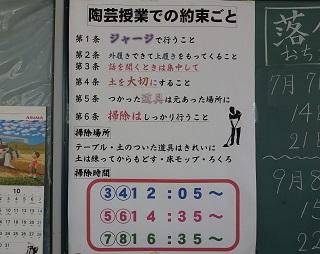 陶芸授業での約束ごと
第1条 ジャージで行うこと
第2条 外履きできて上履きをもってくること
第3条 話を聞くときは集中して
第4条 土を大切にすること
第5条 つかった道具は元あった場所に
第6条 掃除はしっかり行うこと
掃除場所
テーブル・土のついた道具はきれいに
土は練ってからもどす・床モップ・ろくろ
掃除時間
③④12:05～
⑤⑥14:35～
⑦⑧16:35～
10
落
おち
7月7
14
21
9月8
15
22